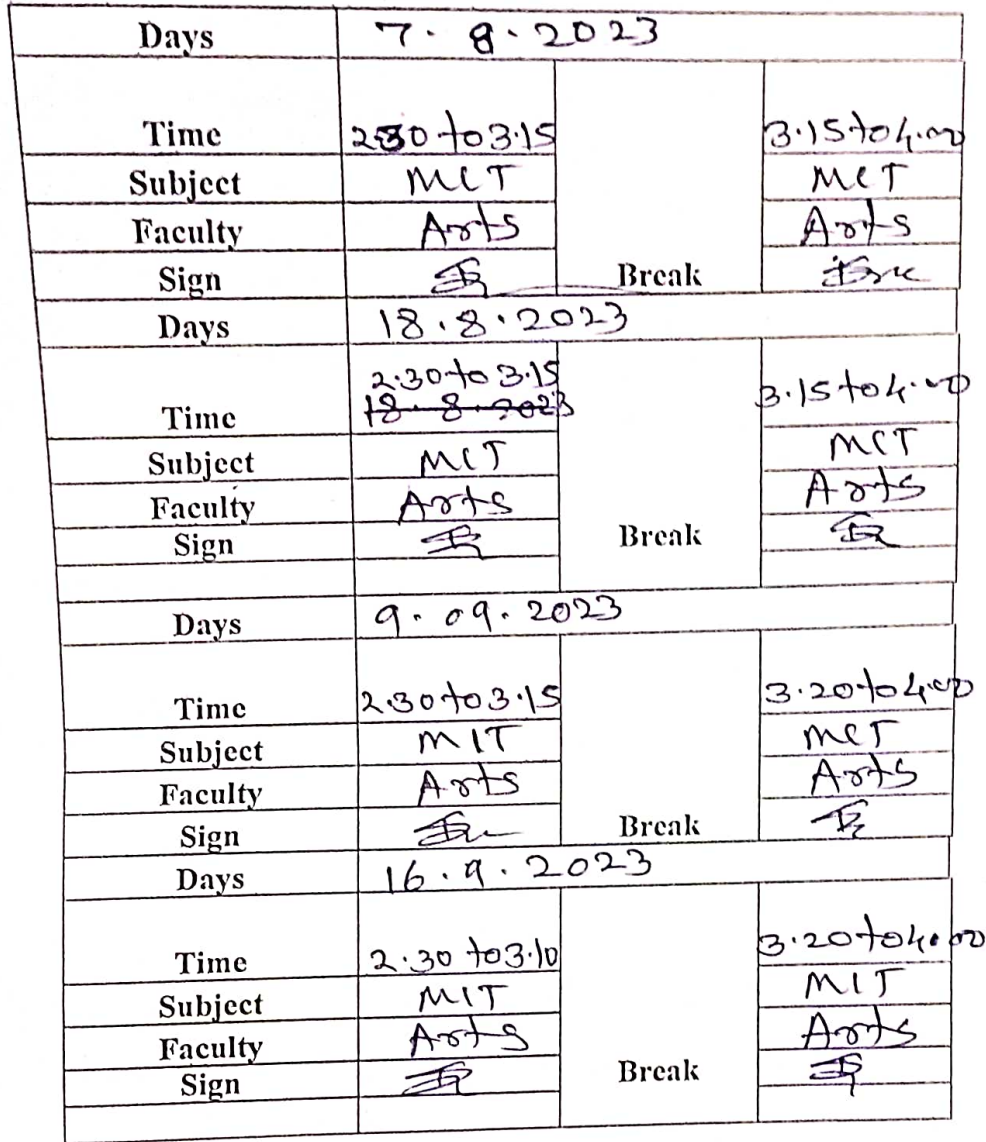 Days 7. 8. 2023
Time 2.30 to 3.15 3.15 to 4.00
Subject MIT MIT
Faculty Arts Arts
Sign Break
Days 18.8.2023
2.30 to 3.15
Time 18.8.2023 3.15 to 4.00
Subject MIT MIT
Faculty Arts Arts
Sign Break
Days 9. 09. 2023
Time 2.30 to 3.15 3.20 to 4.00
Subject MIT MIT
Faculty Arts Arts
Sign Break
Days 16.9.2023
Time 2.30 to 3.10 3.20 to 4.00
Subject MIT MIT
Faculty Arts Arts
Sign Break